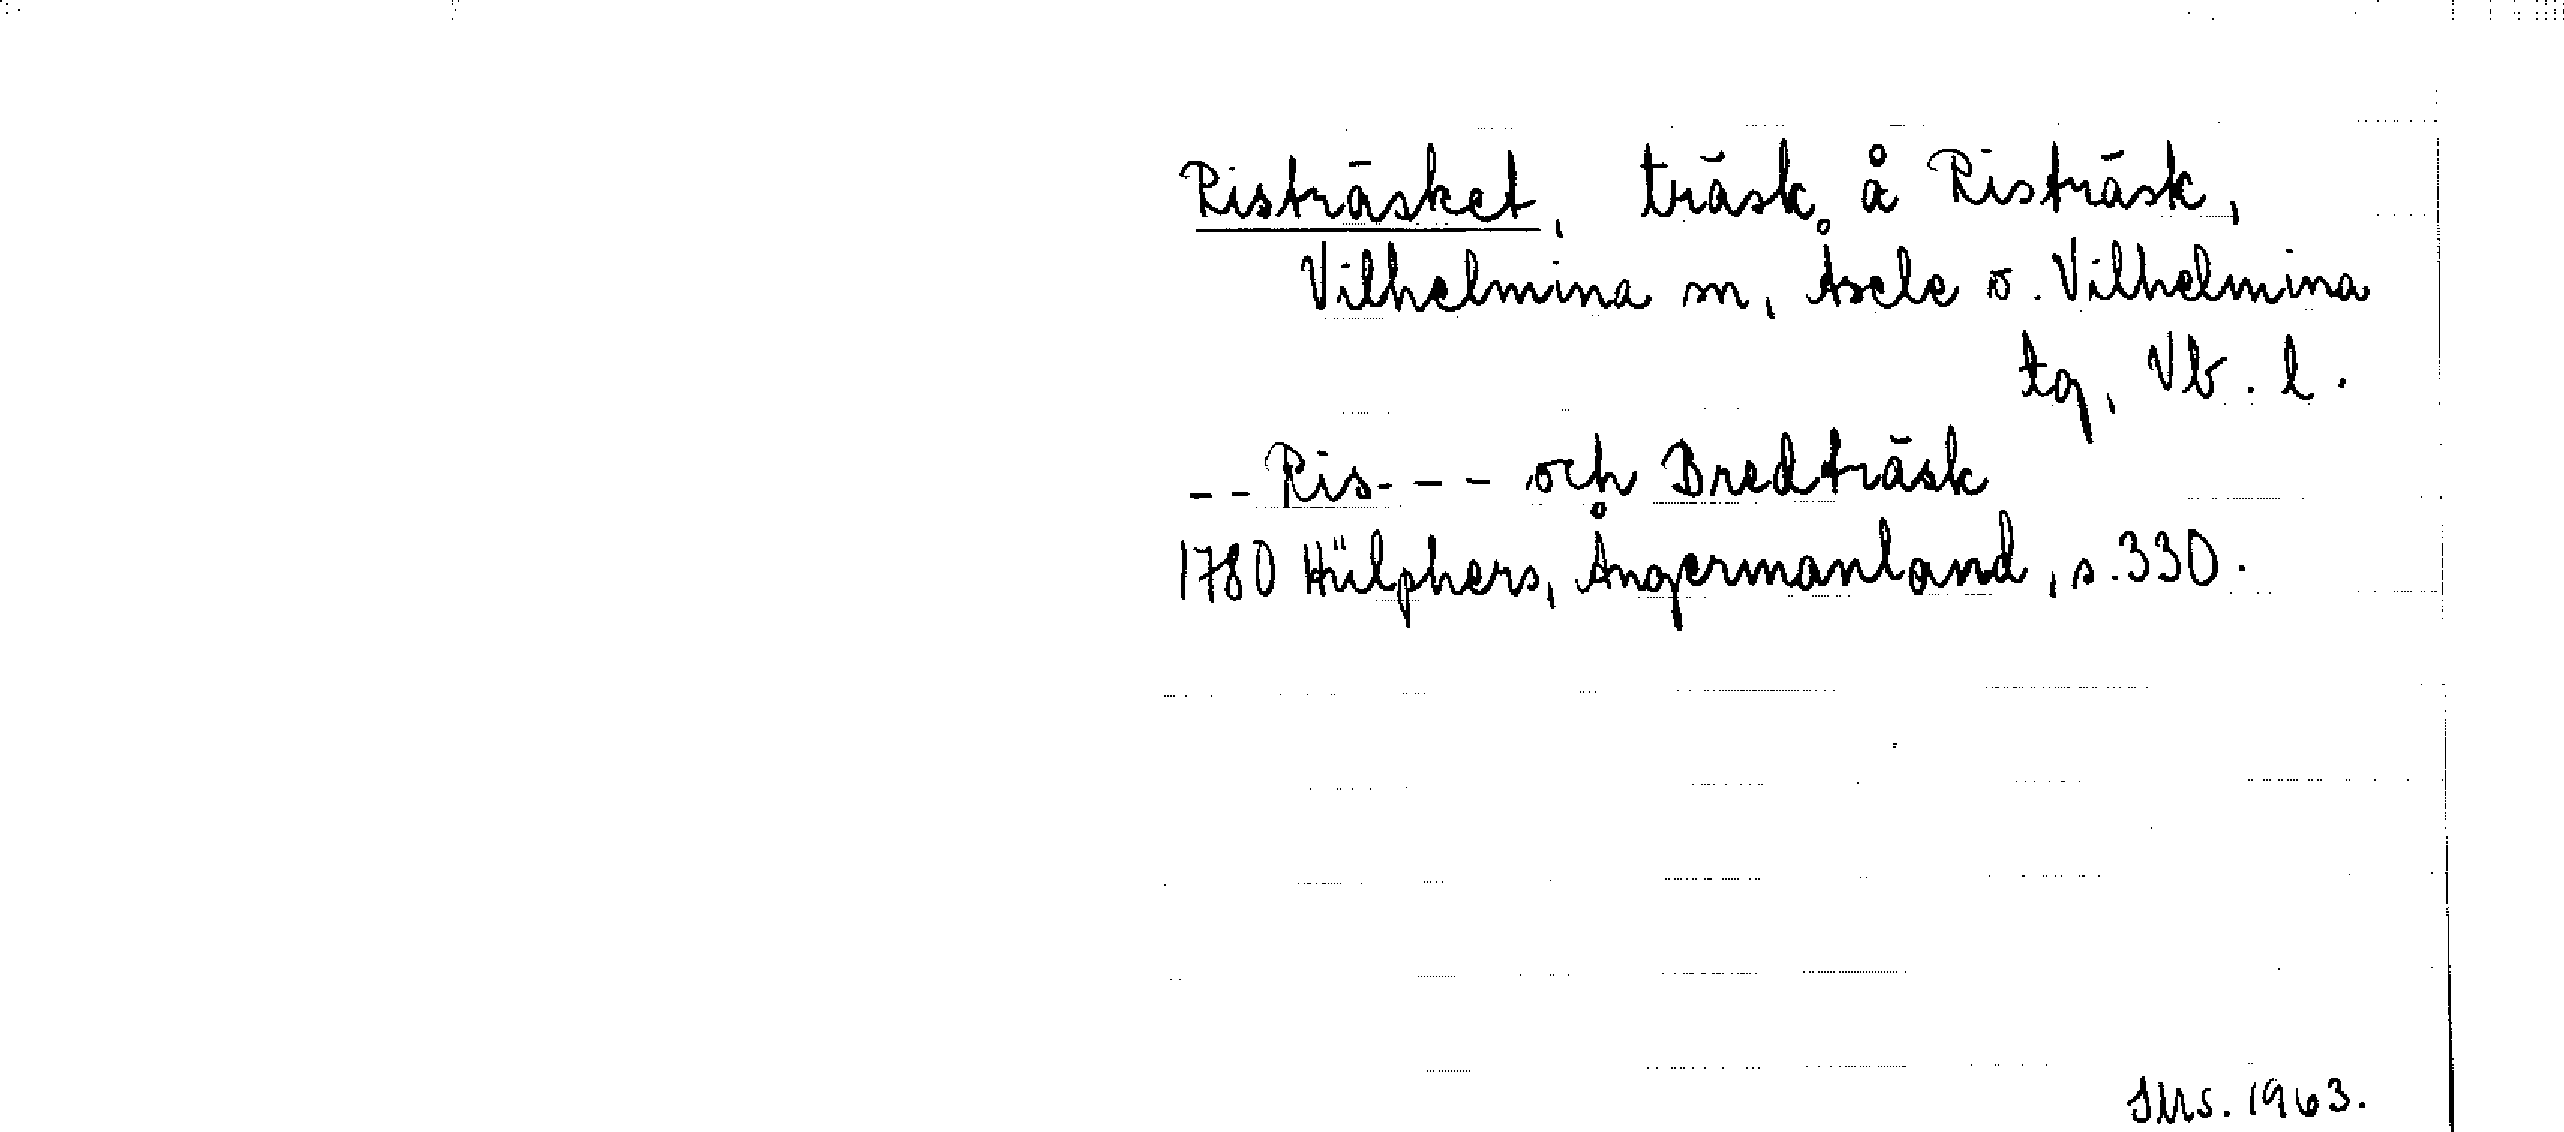 Risträsket, träsk å Risträsk,
Vilhelmina sn, Åsele o. Vilhelmina
tg, Vb. l.
-- Ris--- och Bredträsk
1780 Hülphers, Ångermanland, s. 330.
1963.